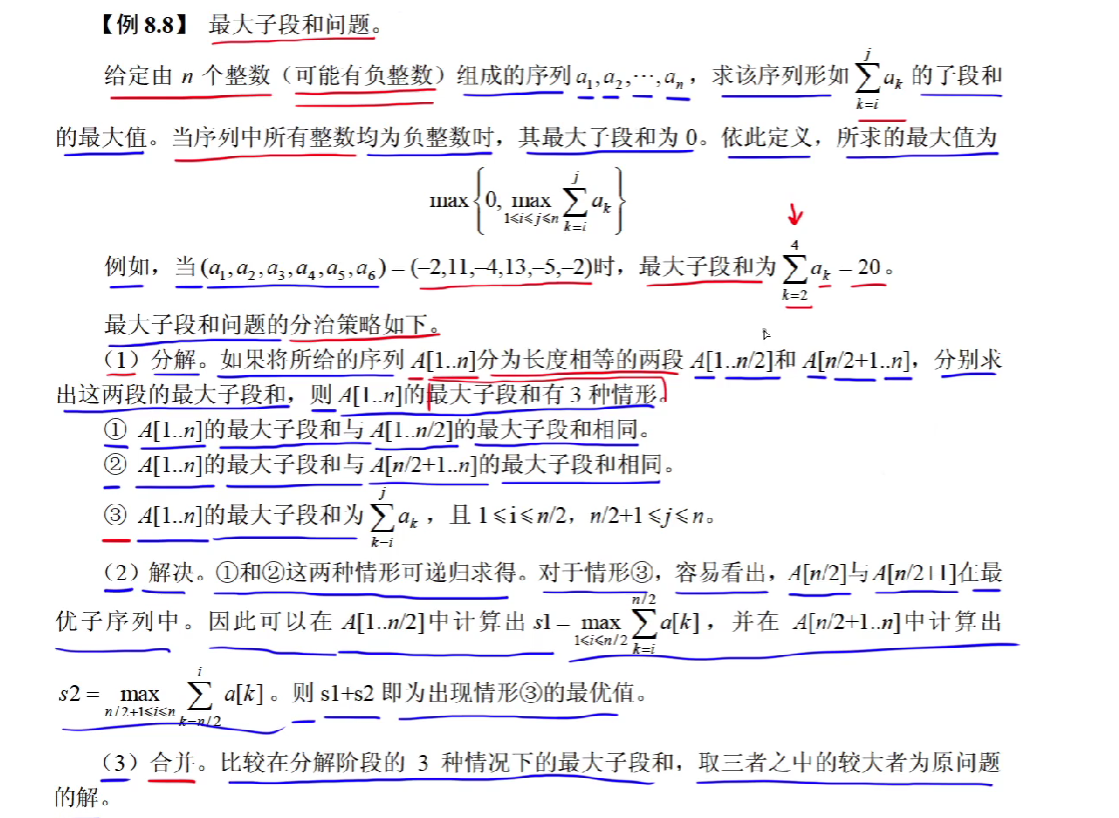 【例 8.8】 最大子段和问题。
给定由 n 个整数（可能有负整数）组成的序列 a₁,a₂,⋯,aₙ，求该序列形如 ∑_{k=i}^{j} aₖ 的子段和
的最大值。当序列中所有整数均为负整数时，其最大子段和为 0。依此定义，所求的最大值为
max{0, max_{1≤i≤j≤n} ∑_{k=i}^{j} aₖ}
例如，当 (a₁,a₂,a₃,a₄,a₅,a₆) = (−2,11,−4,13,−5,−2)时，最大子段和为 ∑_{k=2}^{4} aₖ = 20。
最大子段和问题的分治策略如下。
（1）分解。如果将所给的序列 A[1..n]分为长度相等的两段 A[1..n/2]和 A[n/2+1..n]，分别求
出这两段的最大子段和，则 A[1..n]的最大子段和有 3 种情形。
① A[1..n]的最大子段和与 A[1..n/2]的最大子段和相同。
② A[1..n]的最大子段和与 A[n/2+1..n]的最大子段和相同。
③ A[1..n]的最大子段和为 ∑_{k=i}^{j} aₖ，且 1≤i≤n/2，n/2+1≤j≤n。
（2）解决。①和②这两种情形可递归求得。对于情形③，容易看出，A[n/2]与 A[n/2+1]在最
优子序列中。因此可以在 A[1..n/2]中计算出 s1 = max_{1≤i≤n/2} ∑_{k=i}^{n/2} a[k]，并在 A[n/2+1..n]中计算出
s2 = max_{n/2+1≤i≤n} ∑_{k=n/2}^{i} a[k]。则 s1+s2 即为出现情形③的最优值。
（3）合并。比较在分解阶段的 3 种情况下的最大子段和，取三者之中的较大者为原问题
的解。